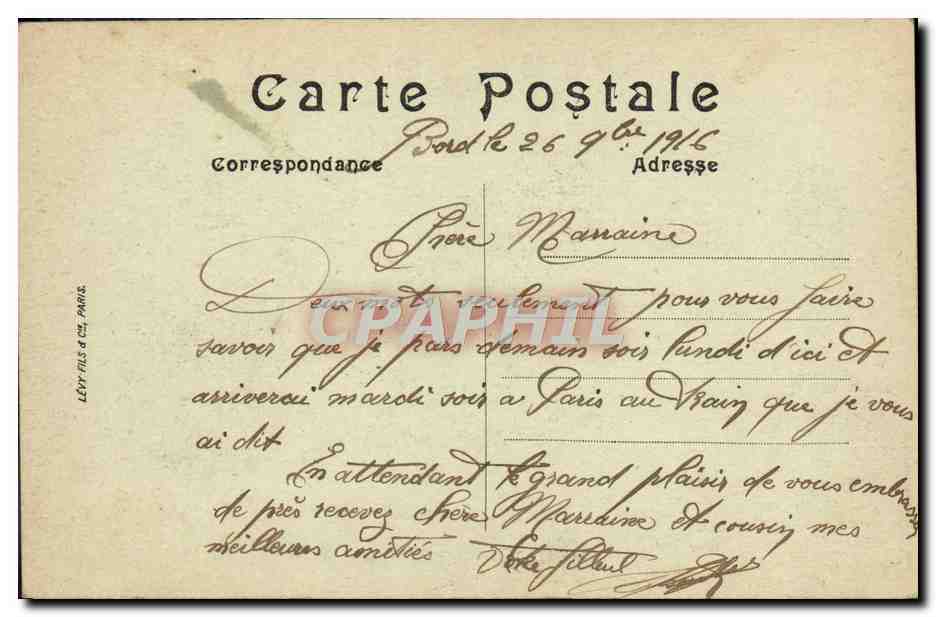 Carte Postale
Bord le 26 9bre 1916
Correspondance Adresse
Chère Marraine
Deux mots seulement pour vous faire
savoir que je pars demain soir lundi d'ici et
arriverai mardi soir a Paris au train que je vous
ai dit
En attendant le grand plaisir de vous embrasser
de près recevez chere Marraine et cousin mes
meilleurs amitiés Votre filleul
LÉVY FILS & Cie, PARIS.
CPAPHIL